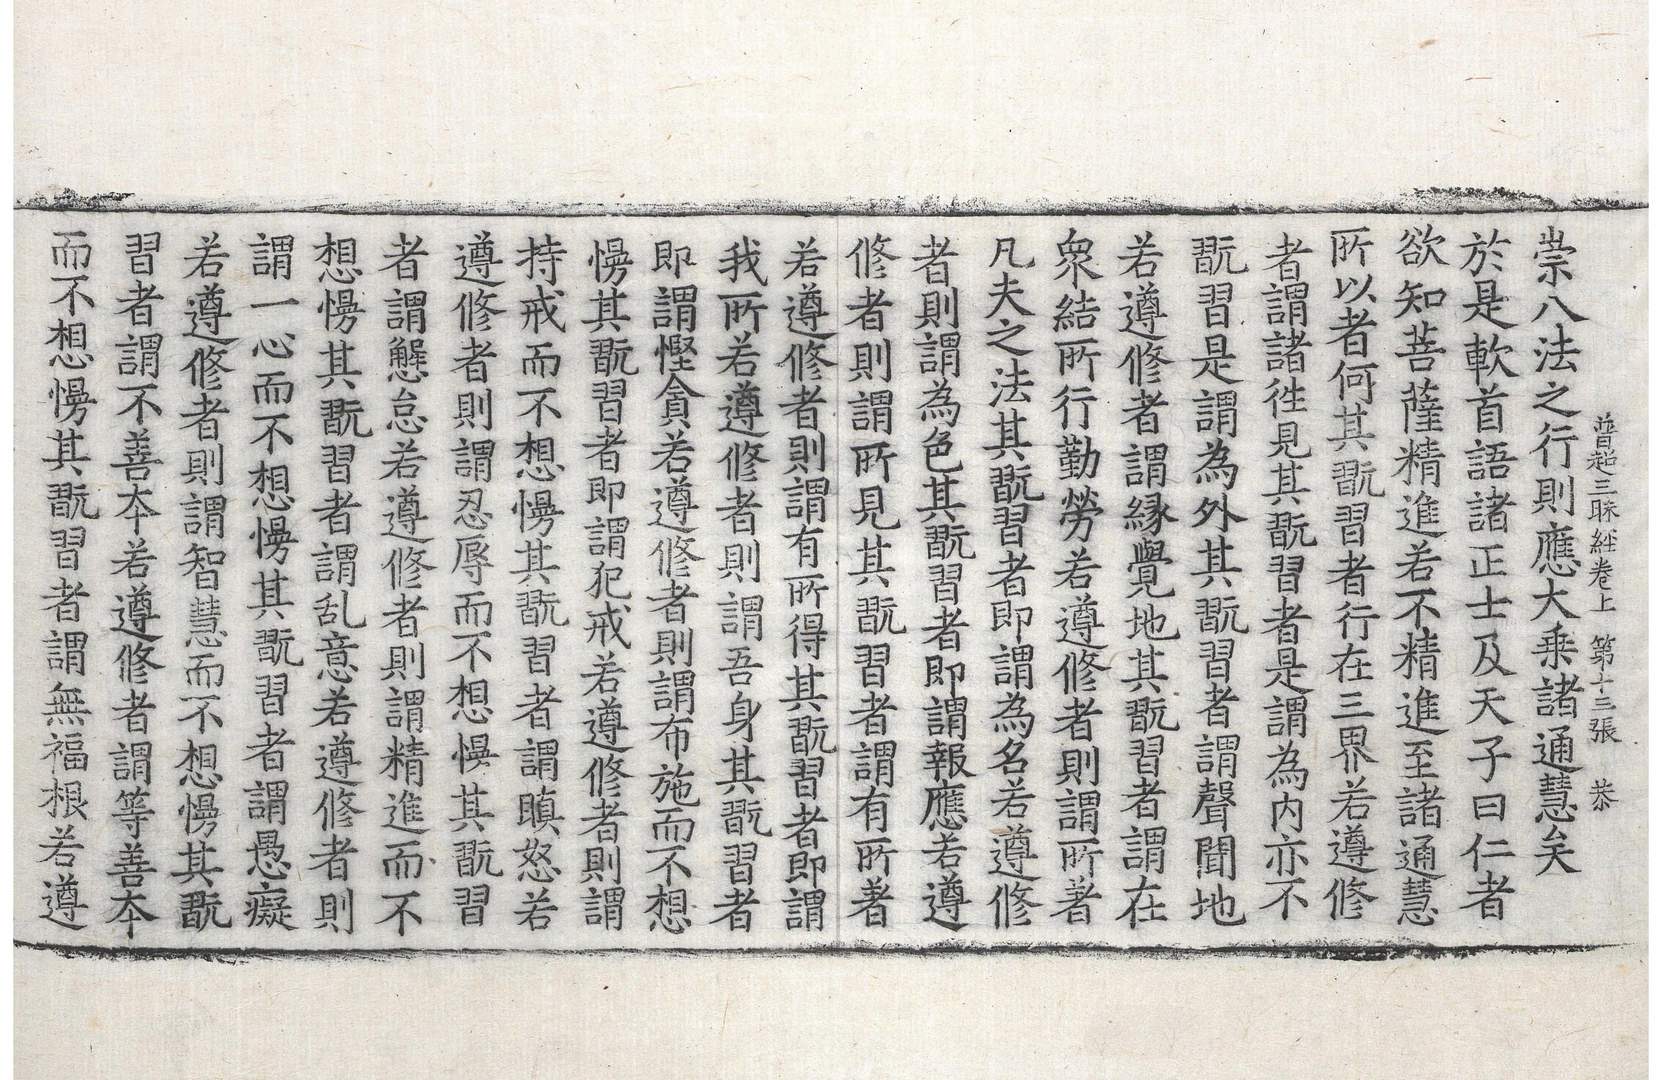 普超三昧経卷上　第十三張　恭
崇八法之行則應大乗諸通慧矣
於是軟首語諸正士及天子曰仁者
欲知菩薩精進若不精進至諸通慧
所以者何其翫習者行在三界若遵修
者謂諸徃見其翫習者是謂為内亦不
翫習是謂為外其翫習者謂聲聞地
若遵修者謂縁覺地其翫習者謂在
衆結所行勤勞若遵修者則謂所著
凡夫之法其翫習者即謂為名若遵修
者則謂為色其翫習者即謂報應若遵
修者則謂所見其翫習者謂有所著
若遵修者則謂有所得其翫習者即謂
我所若遵修者則謂吾身其翫習者
即謂慳貪若遵修者則謂布施而不想
慢其翫習者即謂犯戒若遵修者則謂
持戒而不想慢其翫習者謂瞋怒若
遵修者則謂忍辱而不想慢其翫習
者謂懈怠若遵修者則謂精進而不
想慢其翫習者謂乱意若遵修者則
謂一心而不想慢其翫習者謂愚癡
若遵修者則謂智慧而不想慢其翫
習者謂不善夲若遵修者謂等善夲
而不想慢其翫習者謂無福根若遵